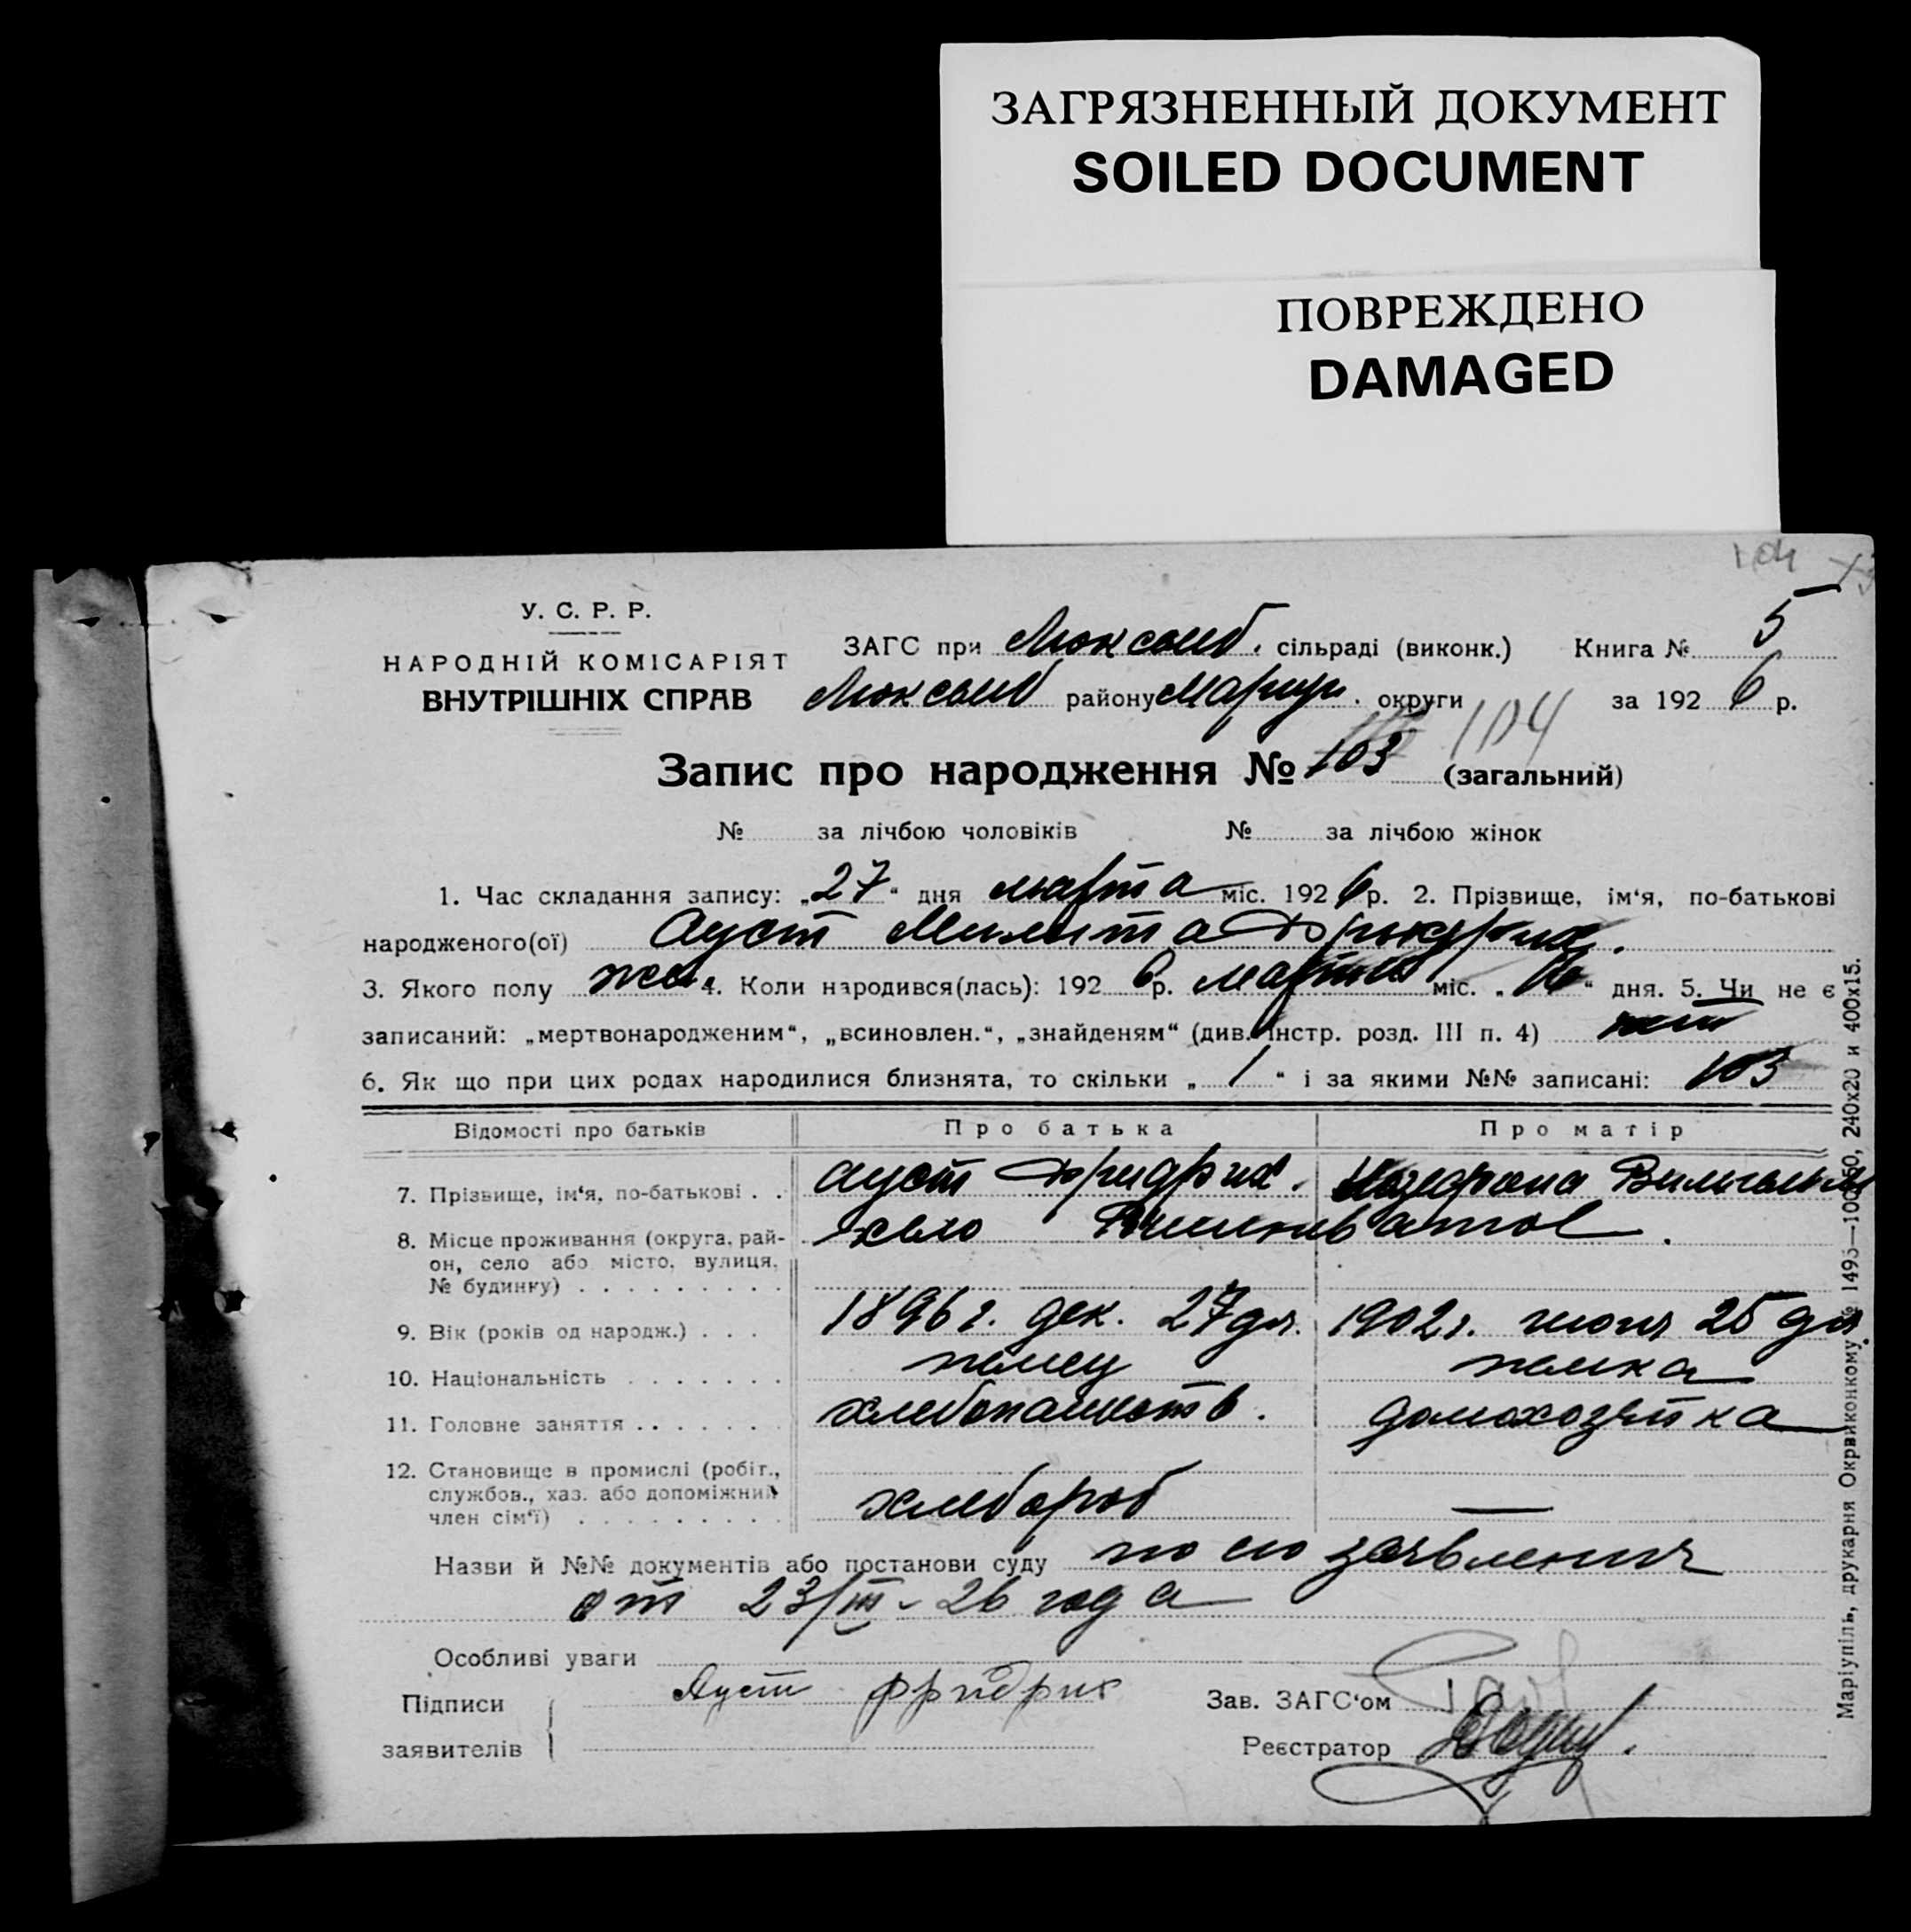 ЗАГРЯЗНЕННЫЙ ДОКУМЕНТ
SOILED DOCUMENT
ПОВРЕЖДЕНО
DAMAGED
104
У. С. Р. Р.
НАРОДНІЙ КОМІСАРІЯТ
ВНУТРІШНІХ СПРАВ
ЗАГС при Люксемб. сільраді (виконк.) Книга № 5
Люксемб району Мариуп. округи за 1926 р.
104
Запис про народження № 103 (загальний)
№ за лічбою чоловіків № за лічбою жінок
1. Час складання запису: „27“ дня марта міс. 1926 р. 2. Прізвище, ім‘я, по-батькові
народженого(ої) Ауст
3. Якого полу жен. 4. Коли народився(лась): 1926 р. марта міс. „ “ дня. 5. Чи не є
записаний: „мертвонародженим“, „всиновлен.“, „знайденям“ (див. Інстр. розд. III п. 4) нет
6. Як що при цих родах народилися близнята, то скільки „ 1 “ і за якими №№ записані: 103
Відомості про батьків Про батька Про матір
7. Прізвище, ім‘я, по-батькові . . Ауст Фридрих.
8. Місце проживання (округа, рай-
он, село або місто, вулиця,
№ будинку) село
9. Вік (років од народж.) . . . 1896 г. дек. 27 дн. 1902 г. июня 25 дня
10. Національність немец немка
11. Головне заняття хлебопашеств. домохозяйка
12. Становище в промислі (робіт.,
службов., хаз. або допоміжний
член сім‘ї) хлебороб —
Назви й №№ документів або постанови суду по его заявления
от 23/III - 26 года
Особливі уваги
Підписи
заявителів Ауст Фридрих
Зав. ЗАГС‘ом
Реєстратор
Маріупіль, друкарня Окрвиконкому № 1495—100050, 240х20 и 400х15.